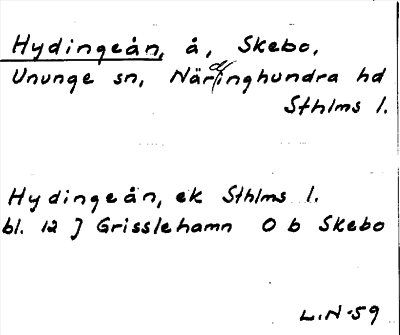 Hydingeån, å, Skebo,
Ununge sn, Närdinghundra hd
Sthlms l.
Hydingeån, ek Sthlms l.
bl. 12 J Grisslehamn O b Skebo
L.N-59